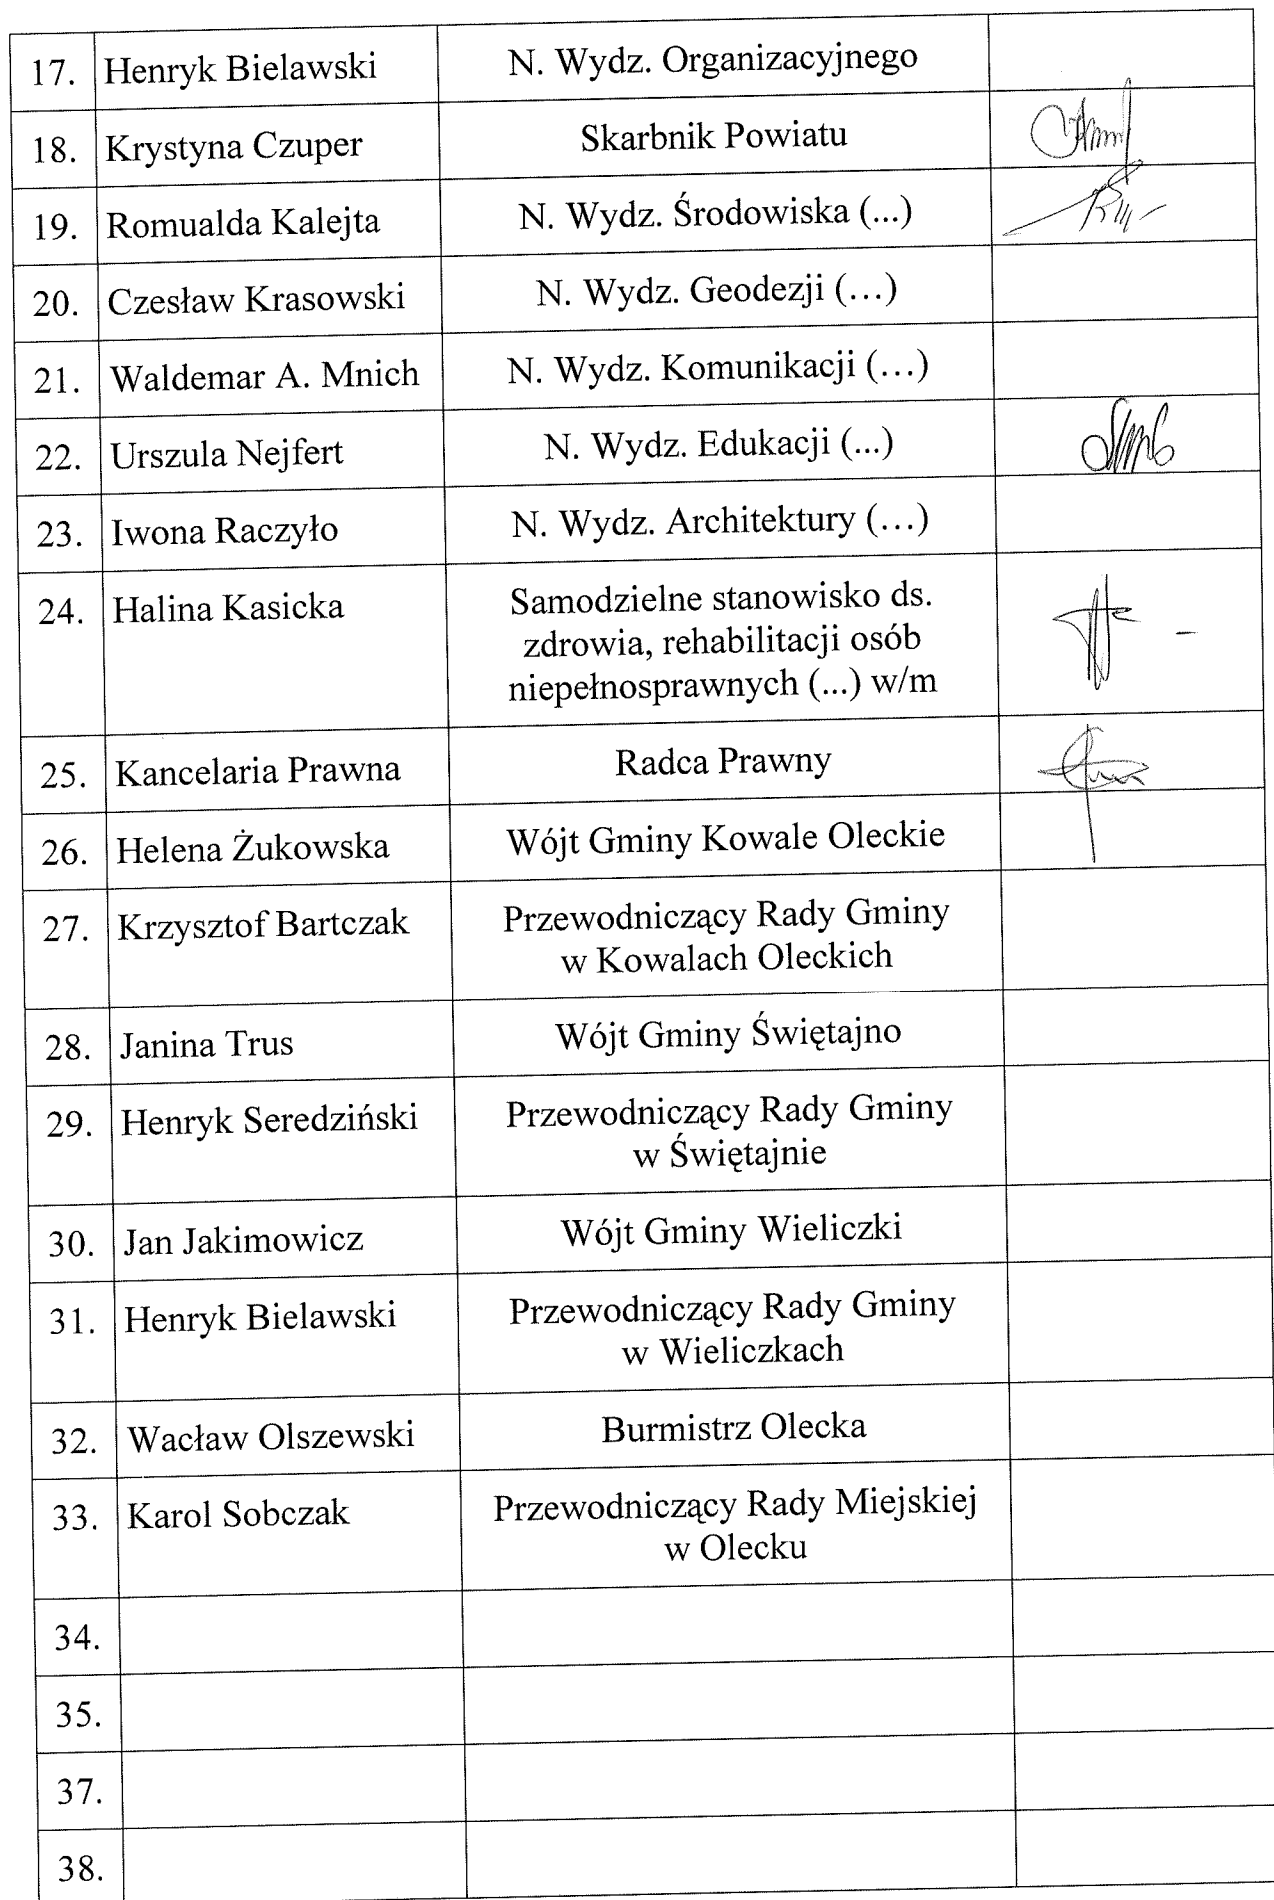 17. Henryk Bielawski N. Wydz. Organizacyjnego
18. Krystyna Czuper Skarbnik Powiatu
19. Romualda Kalejta N. Wydz. Środowiska (...)
20. Czesław Krasowski N. Wydz. Geodezji (...)
21. Waldemar A. Mnich N. Wydz. Komunikacji (...)
22. Urszula Nejfert N. Wydz. Edukacji (...)
23. Iwona Raczyło N. Wydz. Architektury (...)
24. Halina Kasicka Samodzielne stanowisko ds.
zdrowia, rehabilitacji osób
niepełnosprawnych (...) w/m
25. Kancelaria Prawna Radca Prawny
26. Helena Żukowska Wójt Gminy Kowale Oleckie
27. Krzysztof Bartczak Przewodniczący Rady Gminy
w Kowalach Oleckich
28. Janina Trus Wójt Gminy Świętajno
29. Henryk Seredziński Przewodniczący Rady Gminy
w Świętajnie
30. Jan Jakimowicz Wójt Gminy Wieliczki
31. Henryk Bielawski Przewodniczący Rady Gminy
w Wieliczkach
32. Wacław Olszewski Burmistrz Olecka
33. Karol Sobczak Przewodniczący Rady Miejskiej
w Olecku
34.
35.
37.
38.